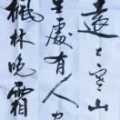 遠上寒山
生處有人
楓林晚霜